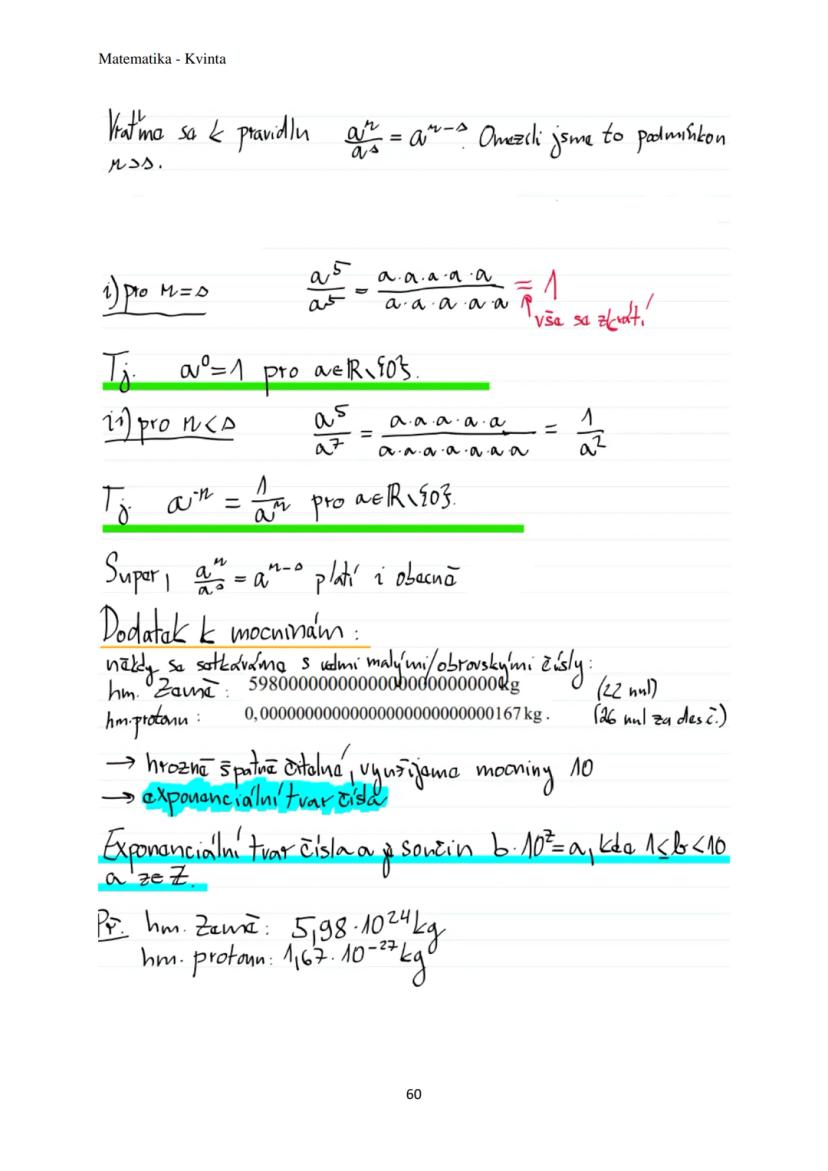 Matematika - Kvinta
Vraťme se k pravidlu a^r/a^s = a^{r-s}. Omezili jsme to podmínkou
r>s.
i) pro r=s a^5/a^5 = a.a.a.a.a/a.a.a.a.a = 1
vše se zkrátí
Tj. a^0=1 pro a∈R\{0}.
ii) pro r<s a^5/a^7 = a.a.a.a.a/a.a.a.a.a.a.a = 1/a^2
Tj. a^{-n} = 1/a^n pro a∈R\{0}.
Super, a^r/a^s = a^{r-s} platí i obecně
Dodatek k mocninám:
někdy se setkáváme s velmi malými/obrovskými čísly:
hm. Země: 5980000000000000000000000kg (22 nul)
hm. protonu: 0,00000000000000000000000000167 kg. (26 nul za des č.)
→ hrozně špatně čitelné, využijeme mocniny 10
→ exponenciální tvar čísla
Exponenciální tvar čísla a je součin b·10^z=a, kde 1≤b<10
a z∈Z.
Př. hm. Země: 5,98·10^24 kg
hm. protonu: 1,67·10^{-27} kg
60